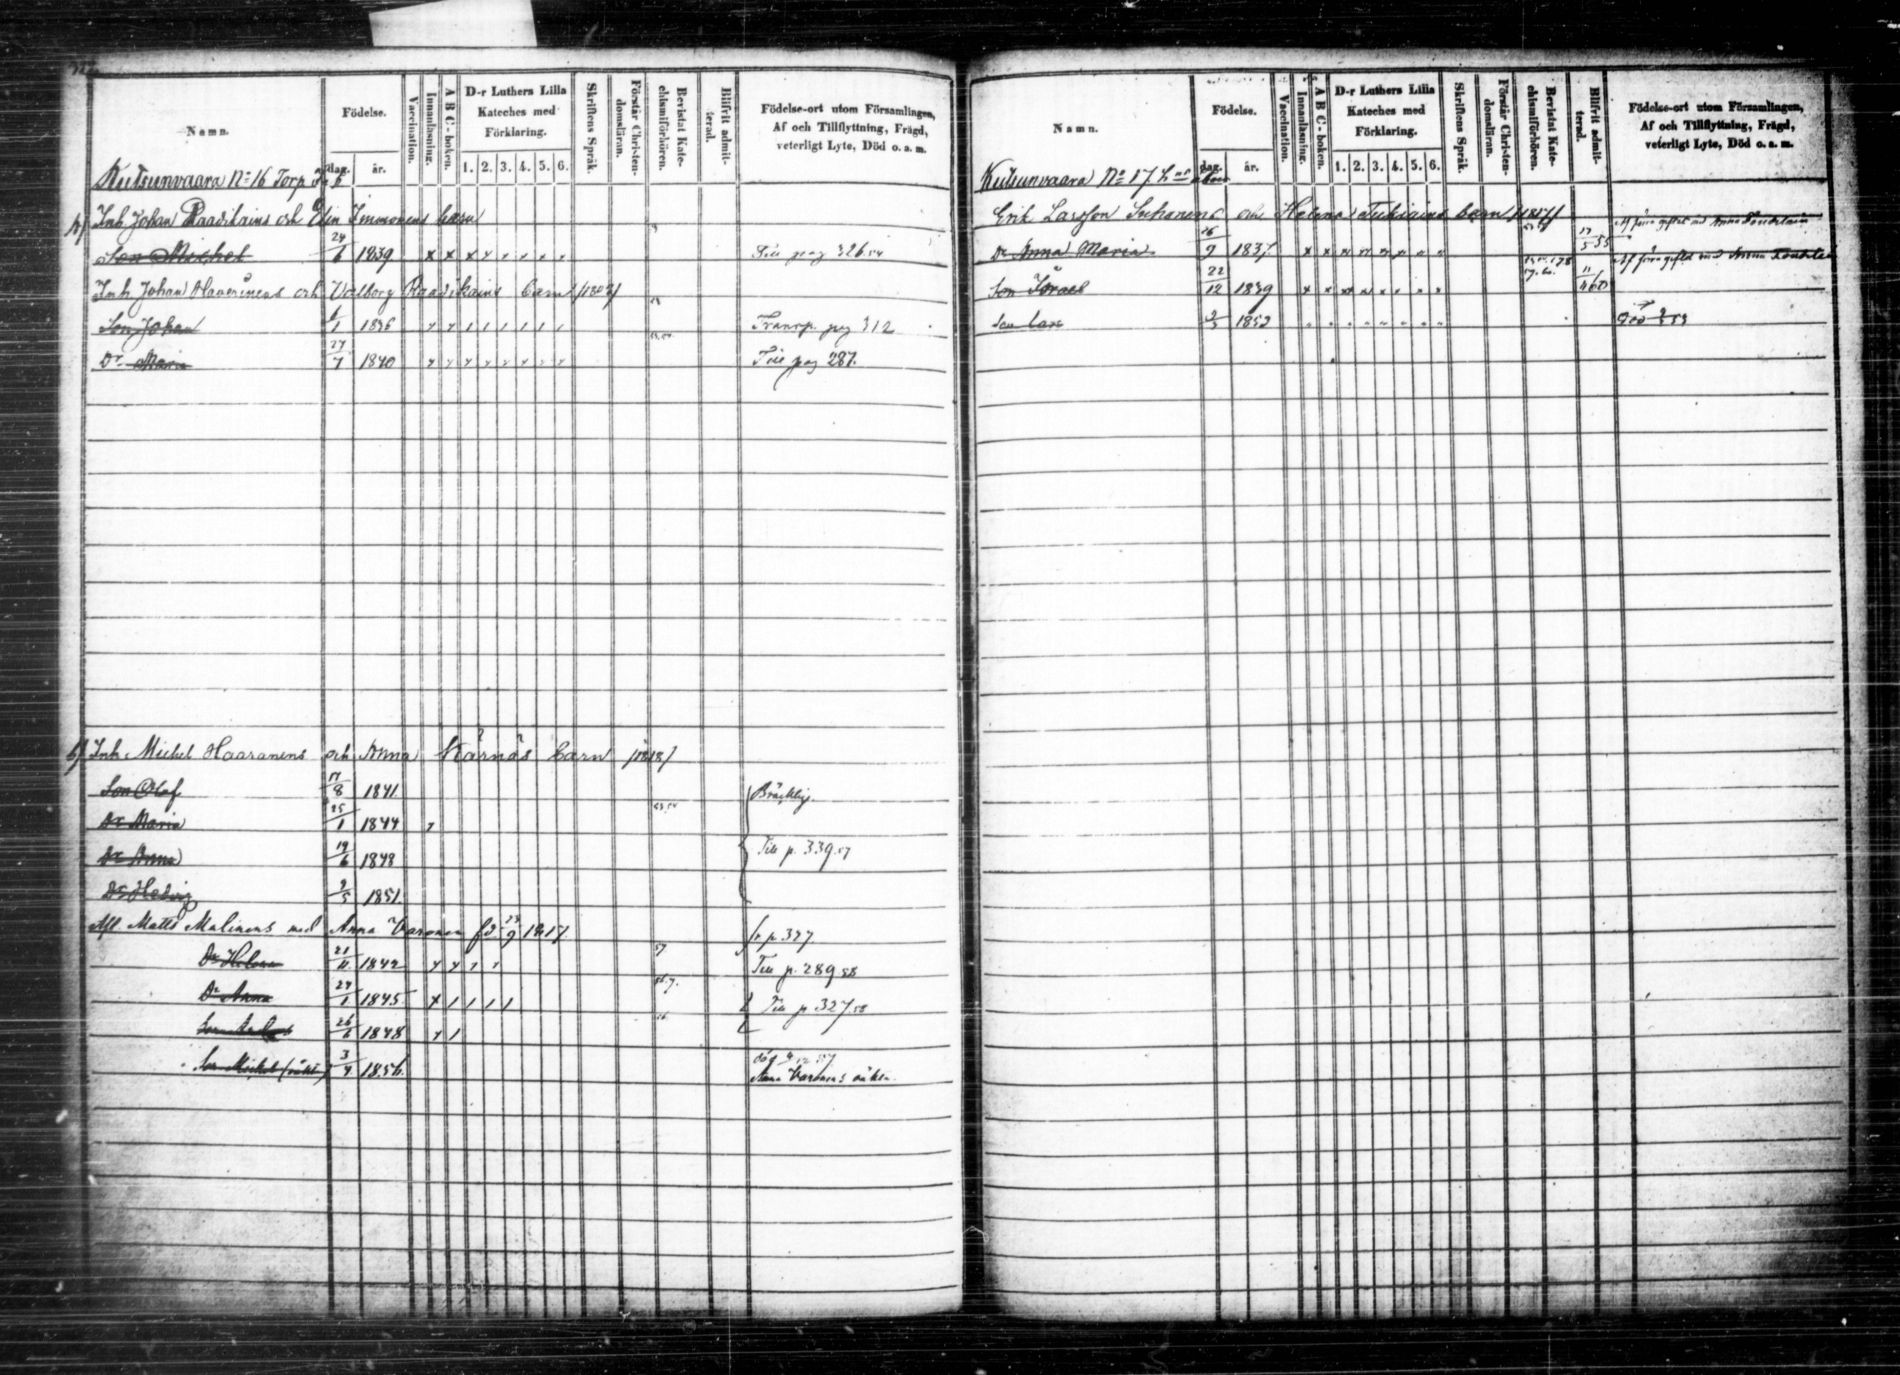 Namn.
Födelse.
dag.
år.
Vaccination.
Innanläsning.
A B C-boken.
D-r Luthers Lilla
Kateches med
Förklaring.
1. 2. 3. 4. 5. 6.
Skriftens Språk.
Förstår Christen-
domsläran.
Bevistat Kate-
chismiförhören.
Blifvit admit-
terad.
Födelse-ort utom Församlingen,
Af och Tillflyttning, Frägd,
veterligt Lyte, Död o. a. m.
Kutsunvaara N:o 16 Torp
a/ Inh Johan Raadikains och Elin Immonens barn
Son Michel 24/6 1839 x x x x x x x x Till pag 326.54
Inh Johan Haverinens och Valborg Raadikains barn
Son Johan 1/1 1836 Transp. pag 312
Dr Maria 27/7 1840 Till pag 287.
b/ Inh Michel Haaranens och Anna Kärnäs barn
Son Olof 17/8 1841 Bräcklig.
Dr Maria 25/1 1844
Dr Anna 19/6 1848 Till p. 339.57
Dr Hedvig 9/5 1851.
Afl. Matts Malinens med Anna Varonen fd 23/9 1817. fr p. 327.
Dr Helena 21/11 1842 Till p. 289 58
Dr Anna 27/1 1845 Till p. 327.58
Son 26/6 1848
Son Michel (oäkta) 3/4 1856. död
Anna Varonens oäkta.
Namn.
Födelse.
dag.
år.
Vaccination.
Innanläsning.
A B C-boken.
D-r Luthers Lilla
Kateches med
Förklaring.
1. 2. 3. 4. 5. 6.
Skriftens Språk.
Förstår Christen-
domsläran.
Bevistat Kate-
chismiförhören.
Blifvit admit-
terad.
Födelse-ort utom Församlingen,
Af och Tillflyttning, Frägd,
veterligt Lyte, Död o. a. m.
Kutsunvaara N:o 17
Erik Larsson Suhonens och Helena Tukiains barn
Dr Anna Maria 26/9 1837. 17/5 55
Son Israel 22/12 1839 11/4 60
Son Lars 2/3 1853 Död